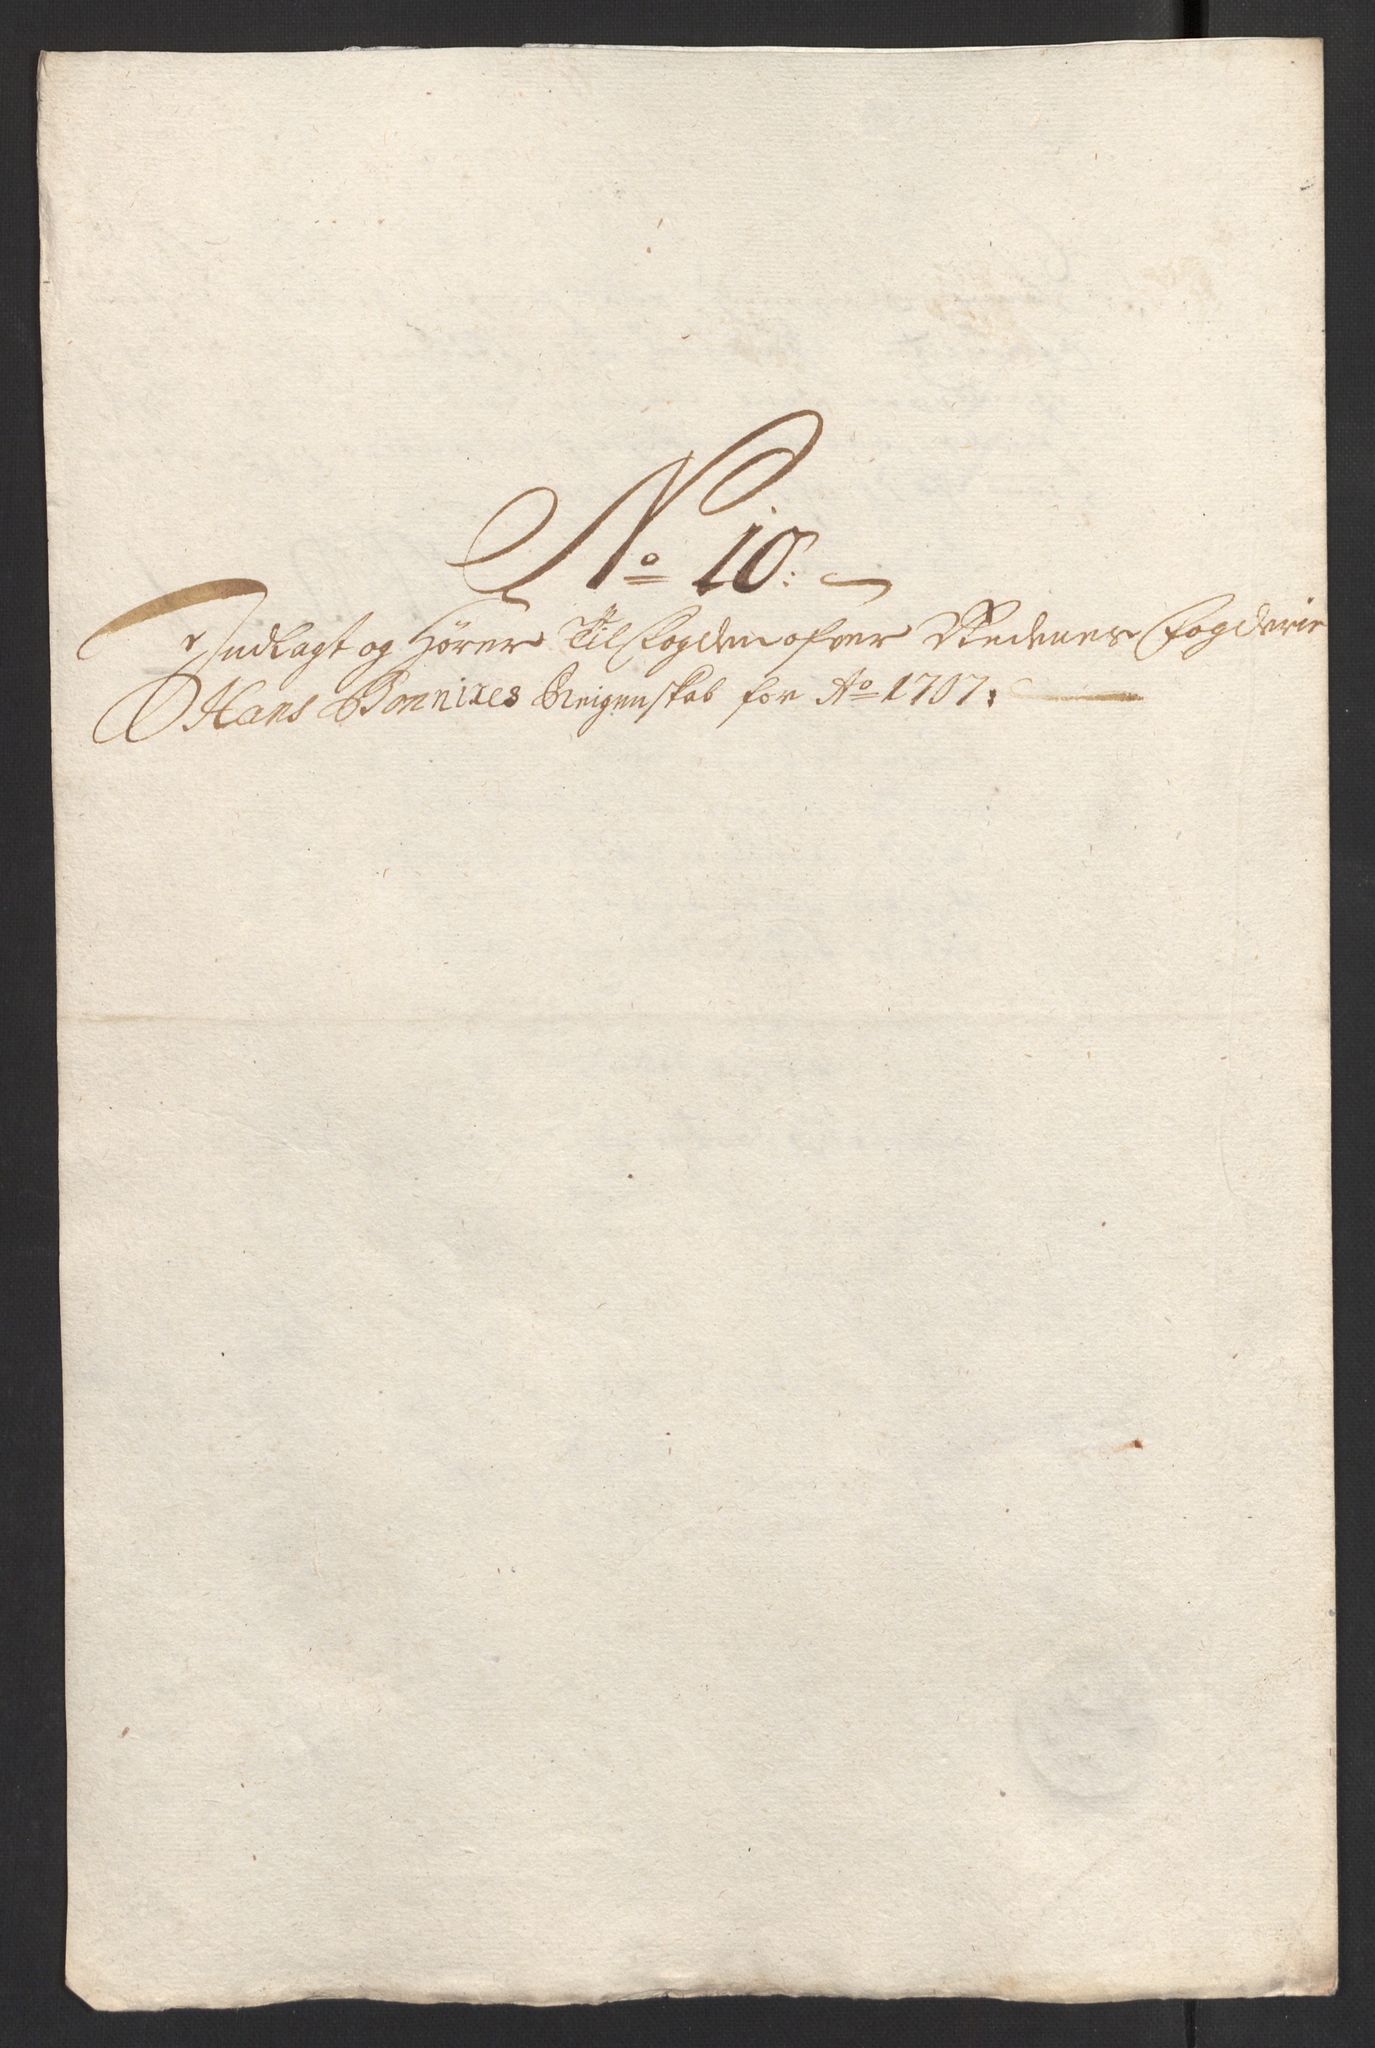 No 10:
Indlagt og Hører Til Fogden ofver Nedenes Fogderie
Hans Bonnixes Reigenskab for Ao 1707: